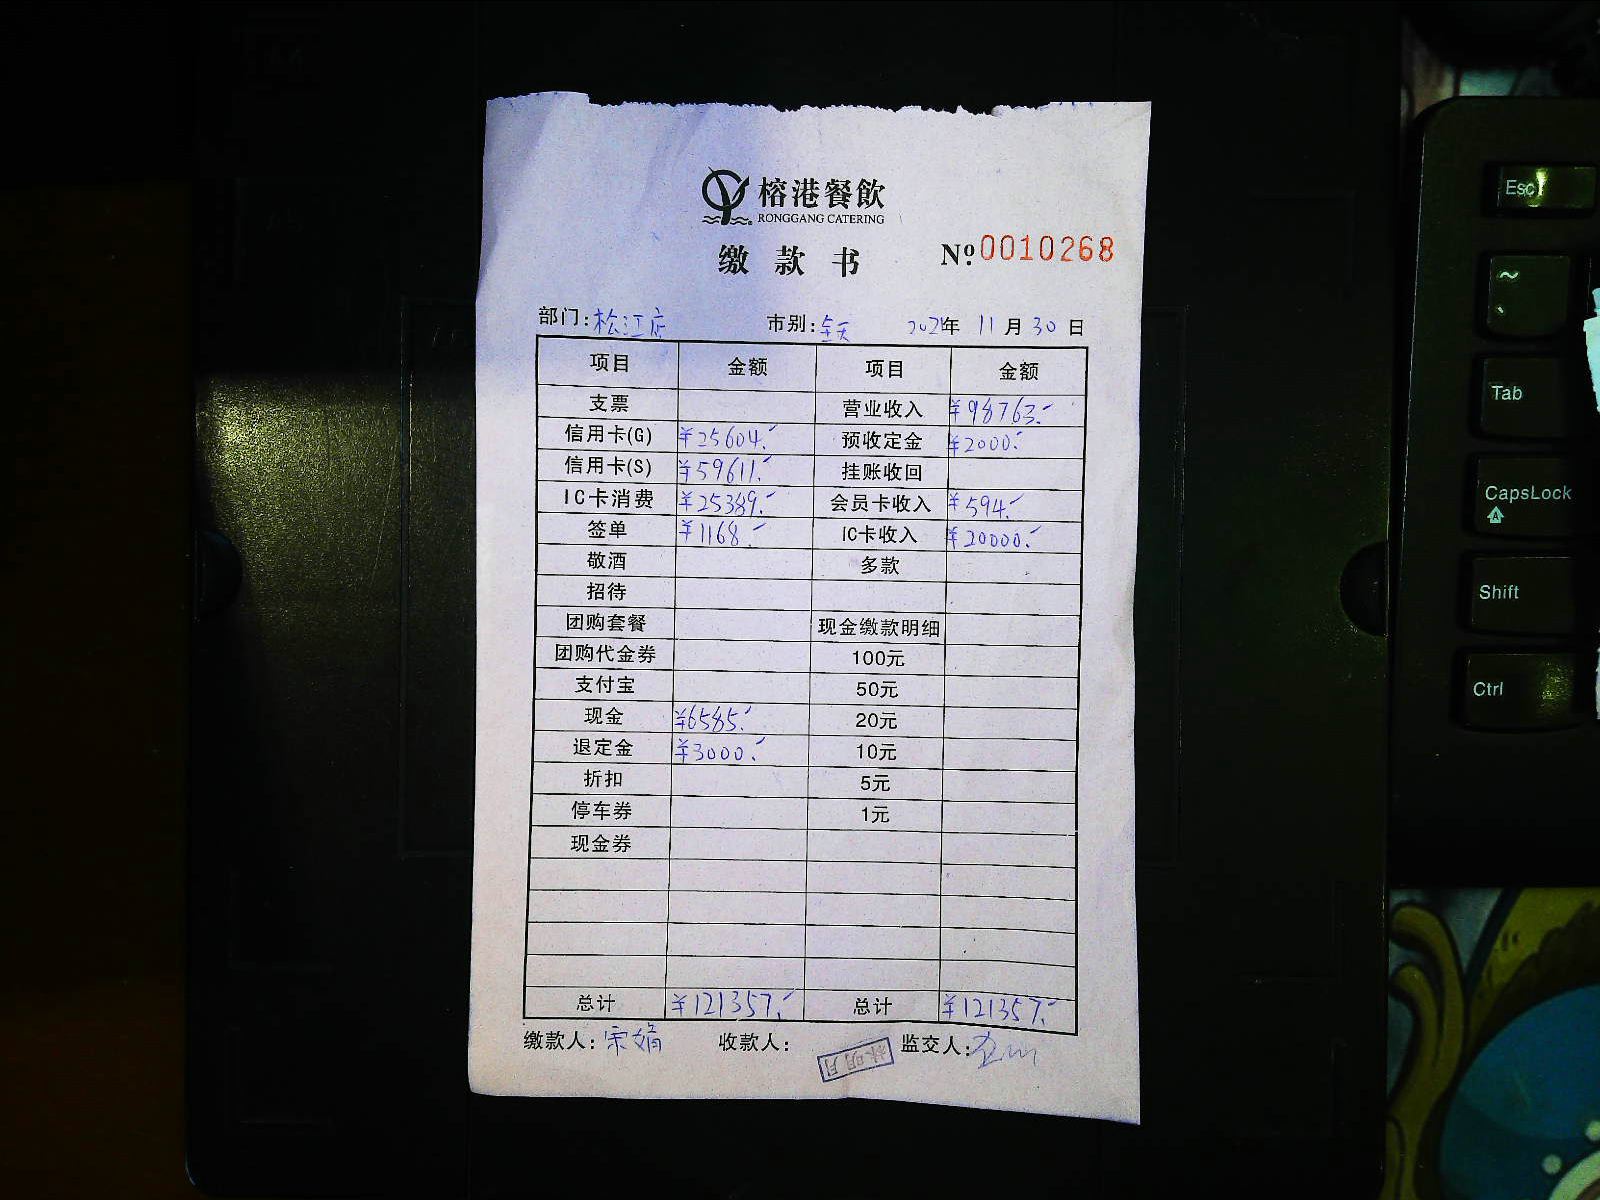 榕港餐飲
RONGGANG CATERING
缴款书 Nº:0010268
部门:松江店 市别:全天 2021年 11月 30日
项目 金额 项目 金额
支票 营业收入 ¥98763.-
信用卡(G) ¥25604.- 预收定金 ¥2000.-
信用卡(S) ¥59611.- 挂账收回
IC卡消费 ¥25389.- 会员卡收入 ¥594.-
签单 ¥1168.- IC卡收入 ¥20000.-
敬酒 多款
招待
团购套餐 现金缴款明细
团购代金券 100元
支付宝 50元
现金 ¥6585.- 20元
退定金 ¥3000.- 10元
折扣 5元
停车券 1元
现金券
总计 ¥121357.- 总计 ¥121357.-
缴款人:宋娟 收款人: 林明月 监交人:
Esc
~
Tab
CapsLock
A
Shift
Ctrl